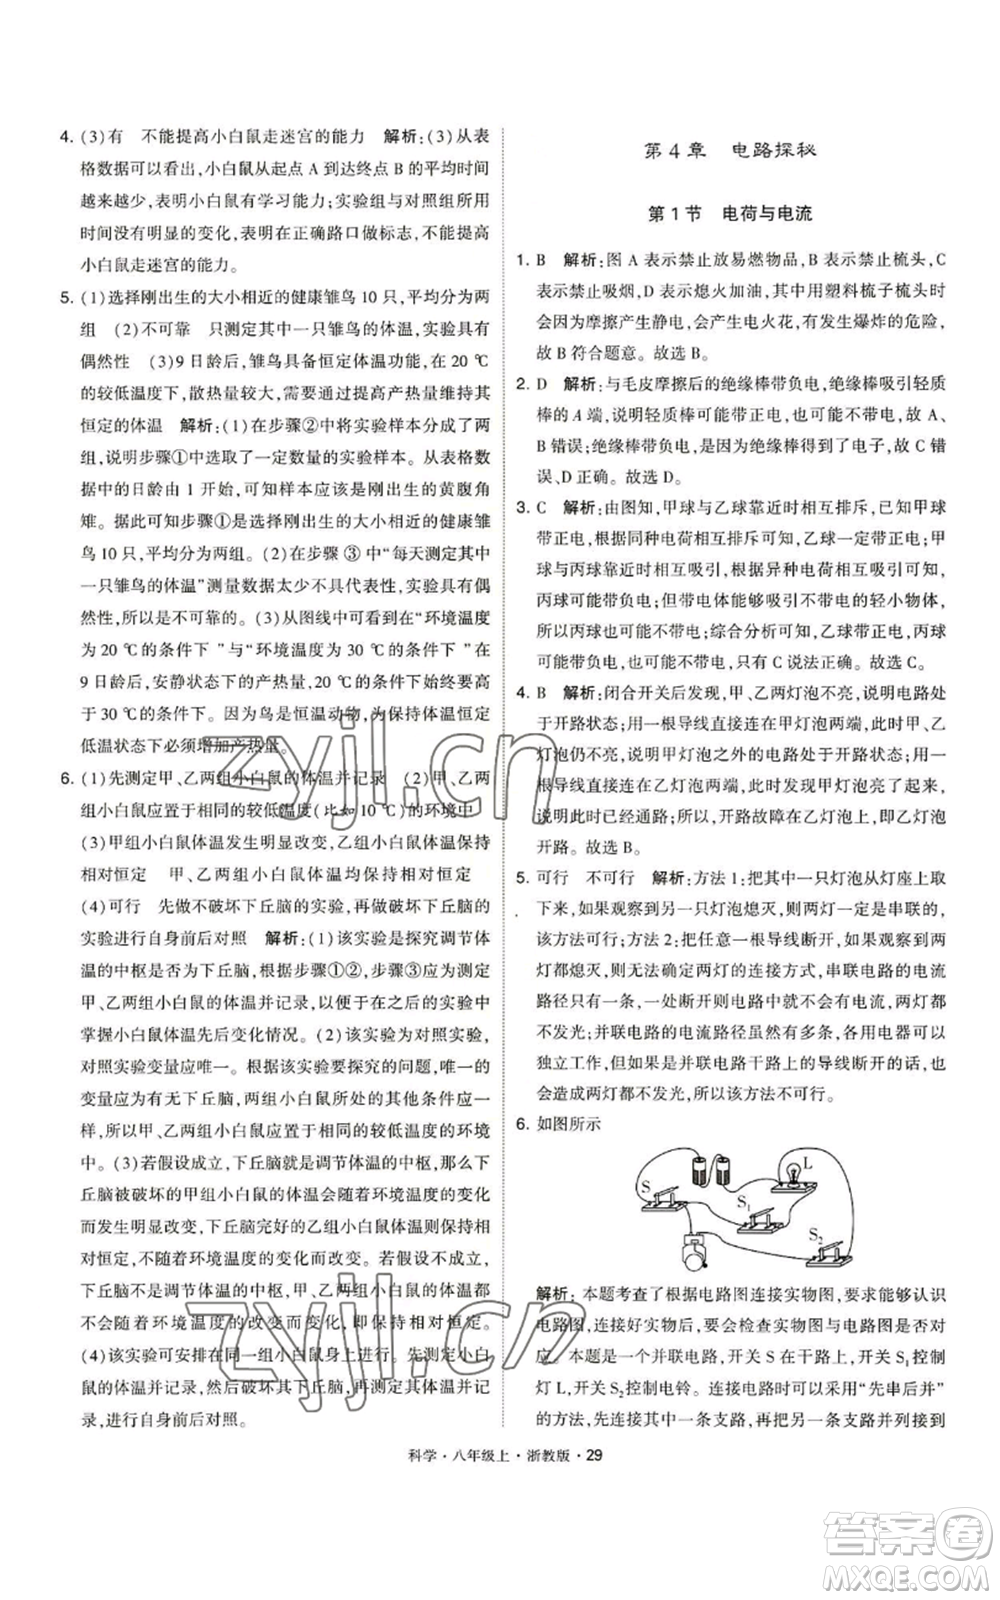 4. (3)有　不能提高小白鼠走迷宫的能力　解析:(3)从表
格数据可以看出,小白鼠从起点 A 到达终点 B 的平均时间
越来越少,表明小白鼠有学习能力;实验组与对照组所用
时间没有明显的变化,表明在正确路口做标志,不能提高
小白鼠走迷宫的能力。
5. (1)选择刚出生的大小相近的健康雏鸟 10 只,平均分为两
组　(2)不可靠　只测定其中一只雏鸟的体温,实验具有
偶然性　(3)9 日龄后,雏鸟具备恒定体温功能,在 20 ℃
的较低温度下,散热量较大,需要通过提高产热量维持其
恒定的体温　解析:(1)在步骤②中实验样本分成了两
组,说明步骤①中选取了一定数量的实验样本。从表格
数据中的日龄由 1 开始,可知样本应该是刚出生的黄腹角
雉。据此可知步骤①是选择刚出生的大小相近的健康雏
鸟 10 只,平均分为两组。(2)在步骤 ③ 中“每天测定其中
一只雏鸟的体温”测量数据太少不具代表性,实验具有偶
然性,所以是不可靠的。(3)从图线中可看到在“环境温度
为 20 ℃的条件下 ”与“环境温度为 30 ℃的条件下 ”,
9 日龄后,安静状态下的产热量,20 ℃的条件下始终要
高于 30 ℃的条件下。因为鸟是恒温动物,为维持体温恒定
低温状态下必须增加产热量。
6. (1)先测定甲、乙两组小白鼠的体温并记录　(2)甲、乙两
组小白鼠应置于相同的较低温度(比如 10 ℃)的环境中
(3)甲组小白鼠体温发生明显改变,乙组小白鼠体温保持
相对恒定　甲、乙两组小白鼠体温均保持相对恒定
(4)可行　先做不破坏下丘脑的实验,再做破坏下丘脑的
实验进行自身前后对照　解析:(1)该实验是探究调节体
温的中枢是否为下丘脑,根据步骤①②,此步骤应是测定
甲、乙两组小白鼠的体温并记录,以便于在后面的实验中
掌握小白鼠体温先后变化情况。(2)该实验为对照实验,
对照实验变量应唯一。根据该实验要探究的问题,唯一的
变量应为下丘脑,两组小白鼠所处的其他条件应相同,
所以甲、乙两组小白鼠应置于相同的较低温度的环境
中。(3)若假设成立,下丘脑就是调节体温的中枢,则下丘
脑被破坏的甲组小白鼠的体温会随着环境温度的变化
而发生明显改变,下丘脑完好的乙组小白鼠体温则保持相
对恒定,不随着环境温度的变化而变化。若假设不成立,
下丘脑不是调节体温的中枢,甲、乙两组小白鼠的体温都
不会随着环境温度的改变而变化,即都会保持相对恒定。
(4)该实验可安排在同一组小白鼠身上进行。先测定小白
鼠的体温并记录,然后破坏其下丘脑,再测定其体温并记
录,进行自身前后对照。
第 4 章　电路探秘
第 1 节　电荷与电流
1. B　解析:图 A 表示禁止放易燃物品,B 表示禁止梳头,C
表示禁止吸烟,D 表示熄火加油,其中用塑料梳子梳头时
会因为摩擦产生静电,会产生电火花,有发生爆炸的危险,
故 B 符合题意。故选 B。
2. D　解析:与毛皮摩擦后的绝缘棒带负电,绝缘棒吸引轻质
棒的 A 端,说明轻质棒可能带正电,也可能不带电,故 A、
B 错误;绝缘棒带负电,是因为绝缘棒得到了电子,故 C 错
误、D 正确。故选 D。
3. C　解析:由图知,甲球与乙球靠近时相互排斥,已知甲球
带正电,根据同种电荷相互排斥,乙球一定带正电;甲
球与丙球靠近时相互吸引,根据异种电荷相互吸引,
丙球可能带负电,但带电体能吸引不带电的轻小物体,
所以丙球也可能不带电;综合分析可知,乙球带正电,丙球
可能带负电,也可能不带电,只有 C 说法正确。故选 C。
4. B　解析:闭合开关后发现,甲、乙两灯泡不亮,说明电路处
于开路状态;用一根导线直接连在甲灯泡两端,此时甲、乙
灯仍不亮,说明甲灯泡之外的电路处于开路状态;用一根
导线直接连在乙灯泡两端,此时甲灯泡亮了起来,说明此
时电路已经通路;所以,开路故障在乙灯泡上,即乙灯泡
开路。故选 B。
5. 可行　不可行　解析:方法 1:把其中一只灯泡从灯座上取
下来,如果观察到另一只灯泡熄灭,则两灯一定是串联的,
该方法可行;方法 2:把任意一根导线断开,如果观察到两
灯都熄灭,则无法确定两灯的连接方式,串联电路的电流
路径只有一条,一处断开则电路中就不会有电流,两灯都
不发光;并联电路的电流路径虽然有多条,各用电器可以
独立工作,但如果是并联电路干路上的导线断开的话,也
会造成两灯都不发光,所以该方法不可行。
6. 如图所示
L
S
S₁
S₂
解析:本题考查了根据电路图连接实物图,要求能够认识
电路图,连接好实物后,要会检查实物图与电路图是否对
应。本题是一个并联电路,开关 S 在干路上,开关 S₁控制
灯 L,开关 S₂控制电铃。连接电路时可采用“先串后并”
的方法,先连接其中一条支路,再把另一条支路并列接到
科学·八年级上·浙教版·29
zyjl.cn
zyjl.cn
答案圈
MXQE.COM